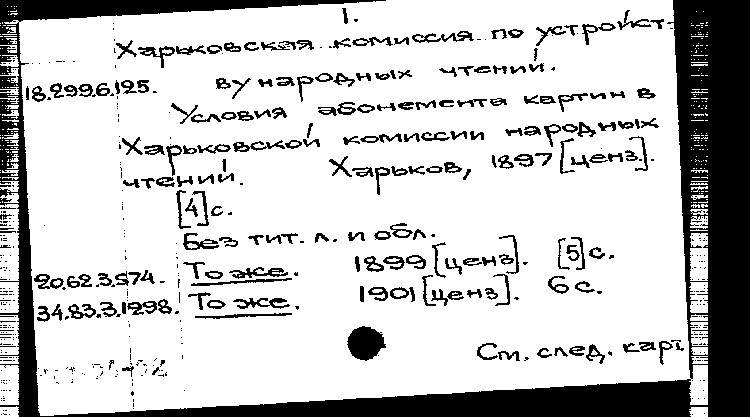 1.
Харьковская комиссия по устройст-
18.299.6.125. ву народных чтений.
Условия абонемента картин в
Харьковской комиссии народных
чтений. Харьков, 1897 [ценз].
[4] с.
Без тит. л. и обл.
20.62.3.574. То же. 1899 [ценз]. [5] с.
34.83.3.1298. То же. 1901 [ценз]. 6 с.
См. след. карт.